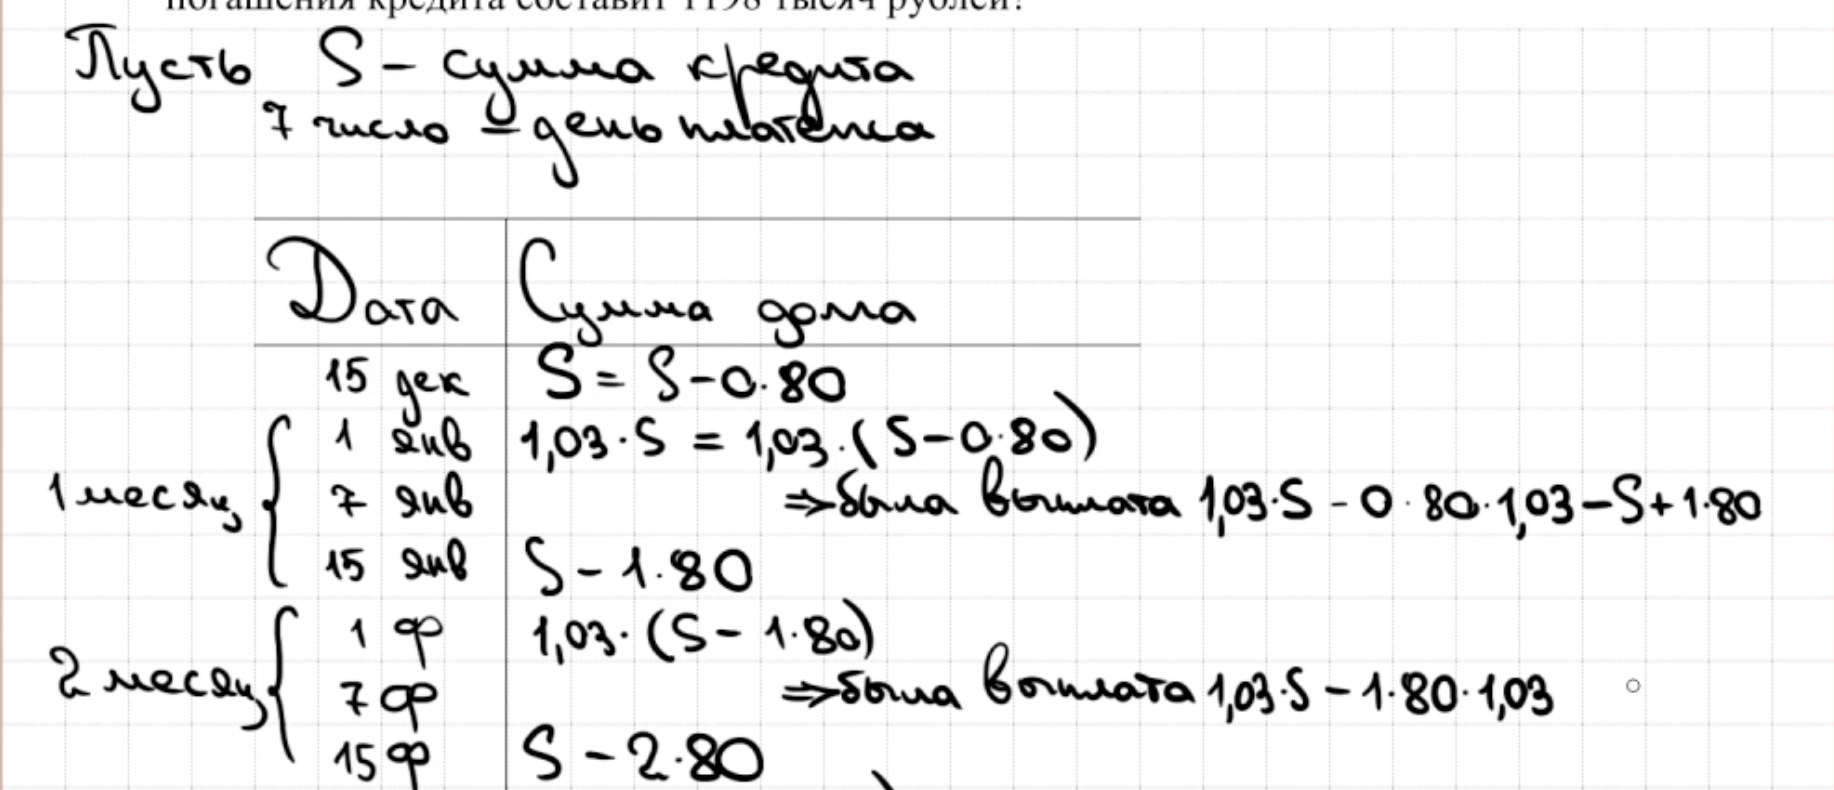 погашения кредита составит 1198 тысяч рублей?
Пусть S - сумма кредита
7 число - день платежа
Дата Сумма долга
15 дек S = S-0·80
1 янв 1,03·S = 1,03·(S-0·80)
1 месяц 7 янв ⇒ была выплата 1,03·S - 0·80·1,03-S+1·80
15 янв S-1·80
1 ф 1,03·(S-1·80)
2 месяц 7 ф ⇒ была выплата 1,03·S-1·80·1,03
15 ф S-2·80